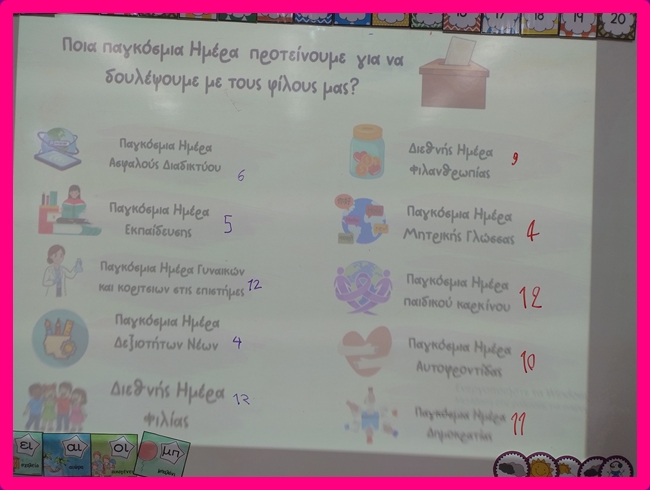 17
18
19
20
Ποια παγκόσμια Ημέρα προτείνουμε για να
δουλέψουμε με τους φίλους μας?
Παγκόσμια Ημέρα
Ασφαλούς Διαδικτύου
6
Παγκόσμια Ημέρα
Εκπαίδευσης
5
Παγκόσμια Ημέρα Γυναικών
και κοριτσιων στις επιστήμες 12
Παγκόσμια Ημέρα
Δεξιοτήτων Νέων 4
Διεθνής Ημέρα
Φιλίας
12
Διεθνής Ημέρα
Φιλανθρωπίας
9
Παγκόσμια Ημέρα
Μητρικής Γλώσσας
4
Παγκόσμια Ημέρα
παιδικού καρκίνου
12
Παγκόσμια Ημέρα
Αυτοφροντίδας
10
Παγκόσμια Ημέρα
Δημοκρατίας
11
ει
αι
οι
μπ